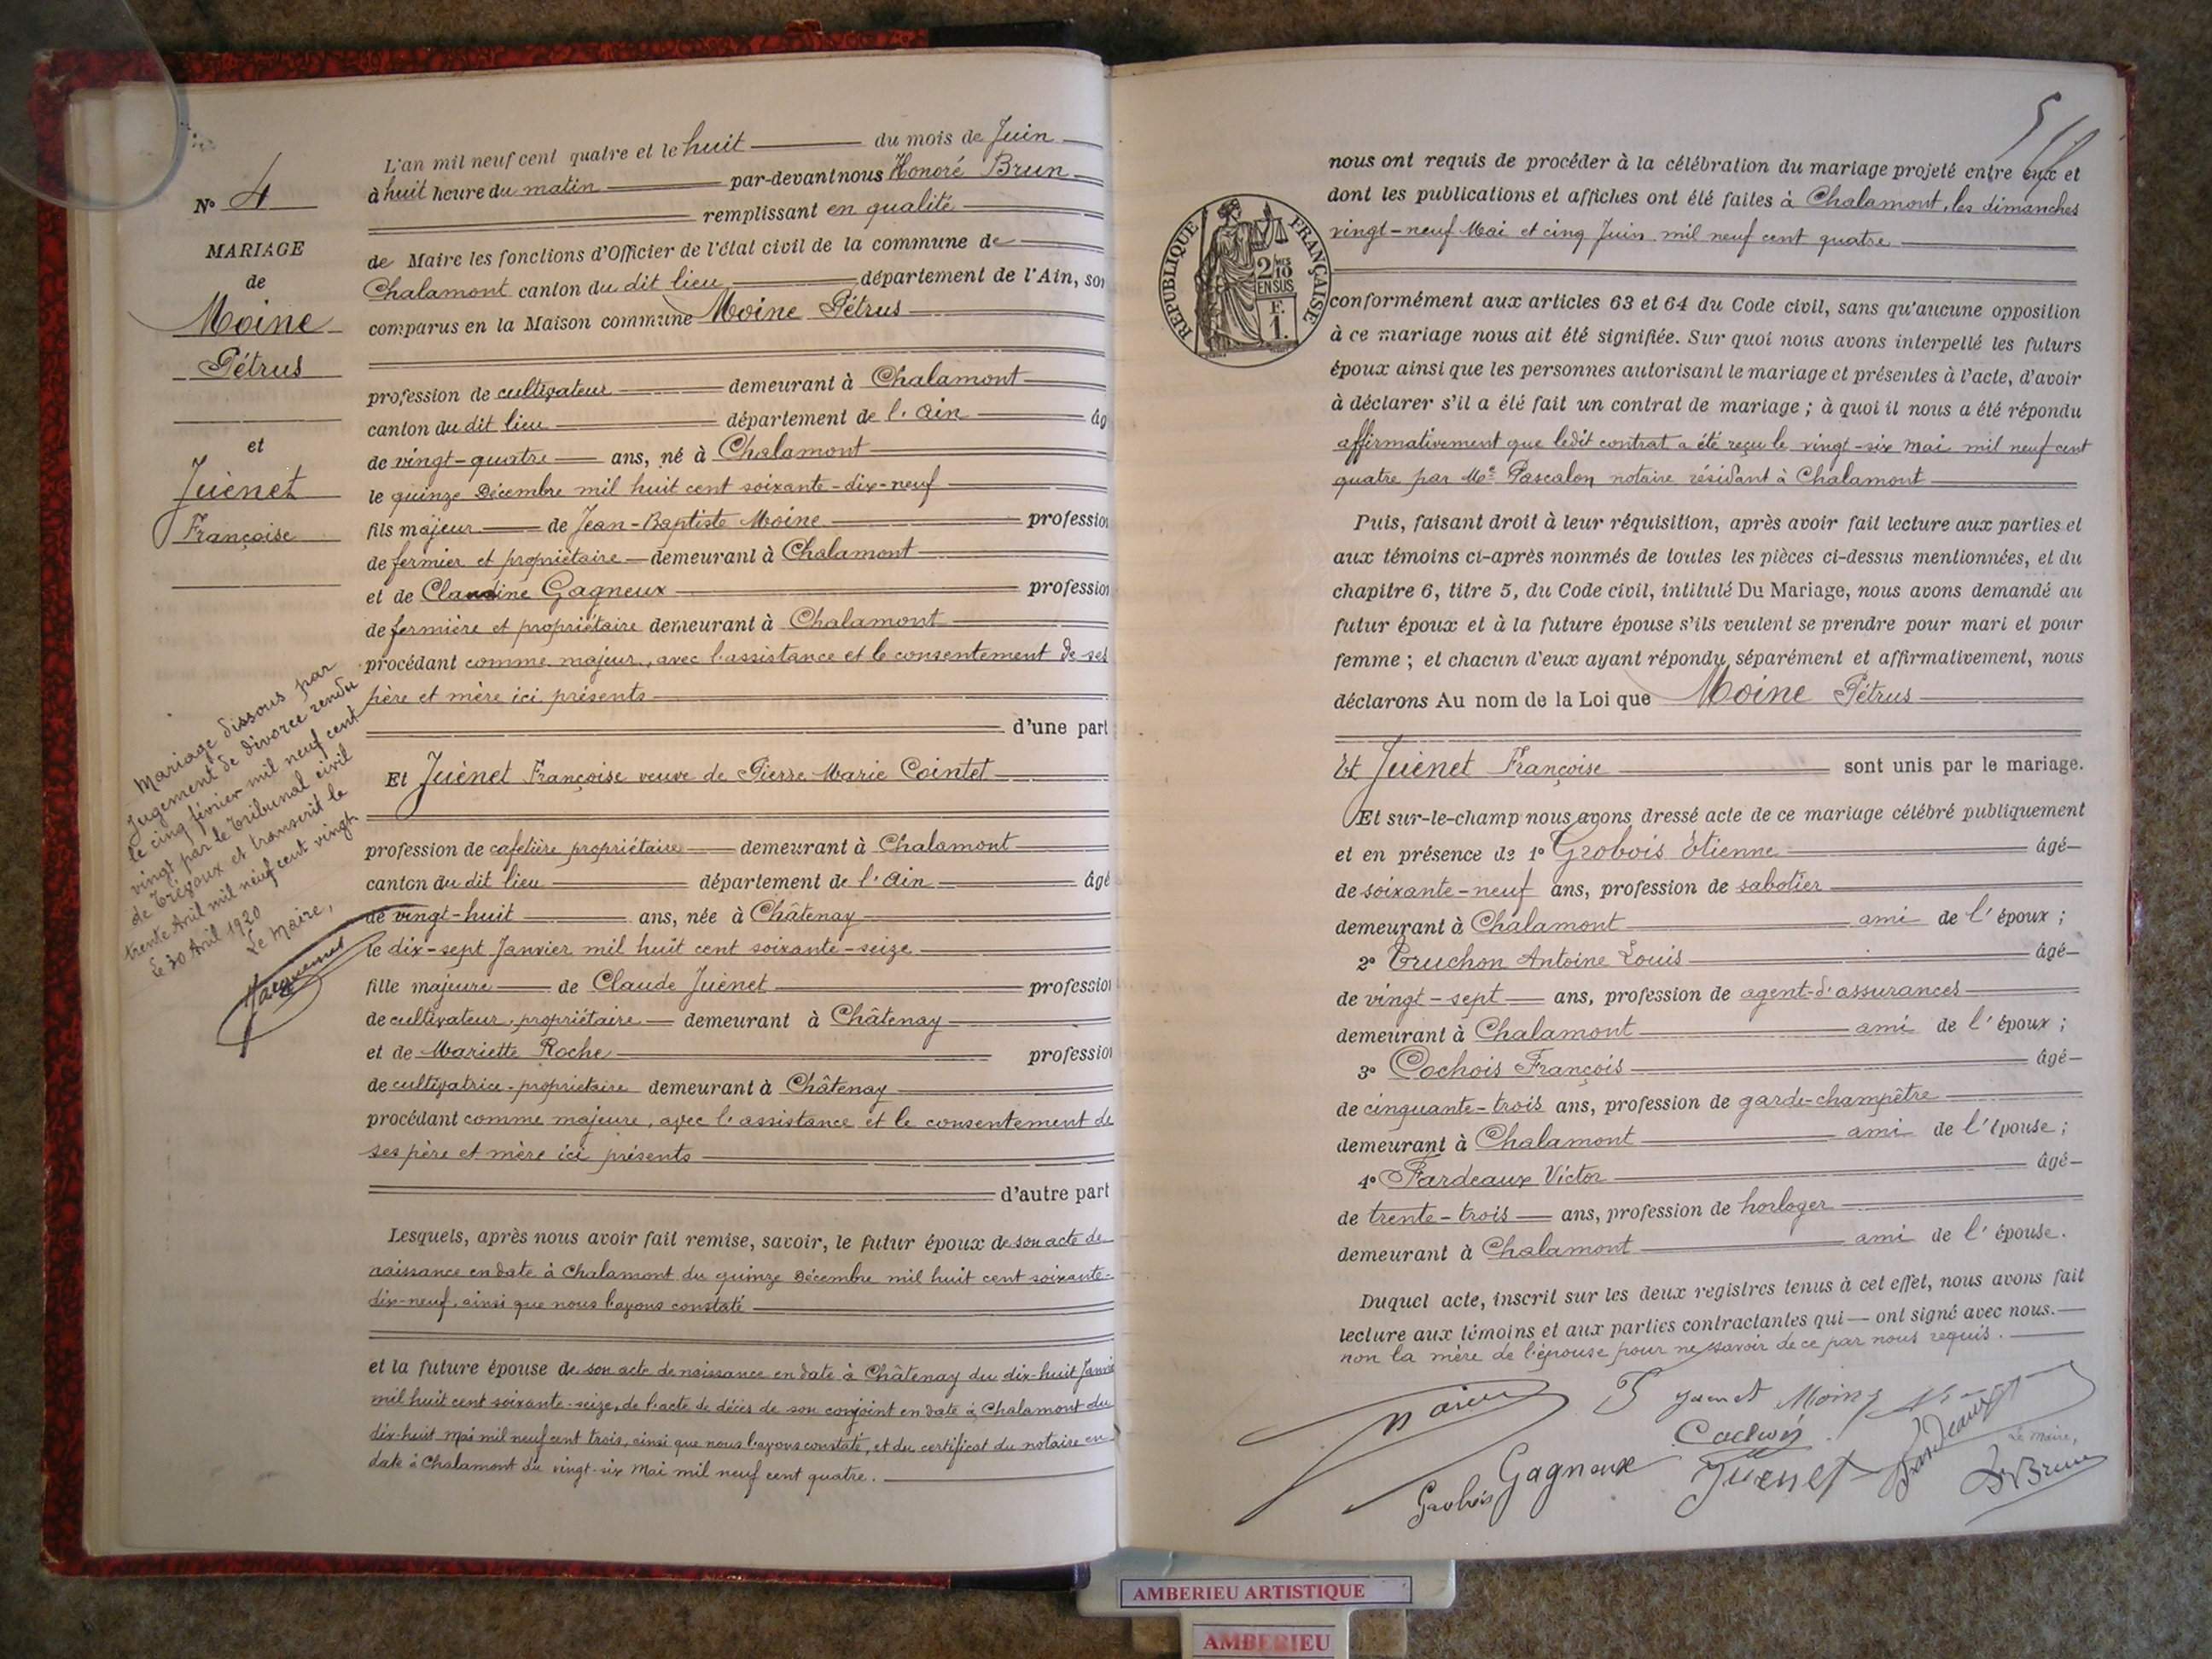 L'an mil neuf cent quatre et le huit du mois de Juin
à huit heure du matin par-devant nous Honoré Brun
remplissant en qualité
de Maire les fonctions d'Officier de l'état civil de la commune de
Chalamont canton du dit lieu département de l'Ain, son
comparus en la Maison commune Moine Pétrus
profession de cultivateur demeurant à Chalamont
canton du dit lieu département de l'Ain âg
de vingt-quatre ans, né à Chalamont
le quinze Décembre mil huit cent soixante-dix-neuf
fils majeur de Jean-Baptiste Moine profession
de fermier et propriétaire demeurant à Chalamont
et de Claudine Gagneux profession
de fermière et propriétaire demeurant à Chalamont
procédant comme majeur, avec l'assistance et le consentement de ses
père et mère ici présents
d'une part
Et Juénet Françoise veuve de Pierre Marie Cointet
profession de cafetière propriétaire demeurant à Chalamont
canton du dit lieu département de l'Ain âgé
de vingt-huit ans, née à Châtenay
le dix-sept Janvier mil huit cent soixante-seize
fille majeure de Claude Juénet profession
de cultivateur, propriétaire demeurant à Châtenay
et de Mariette Roche profession
de cultivatrice-propriétaire demeurant à Châtenay
procédant comme majeure, avec l'assistance et le consentement de
ses père et mère ici présents
d'autre part
Lesquels, après nous avoir fait remise, savoir, le futur époux de son acte de
naissance en date à Chalamont du quinze Décembre mil huit cent soixante-
dix-neuf, ainsi que nous l'avons constaté
et la future épouse de son acte de naissance en date à Châtenay du dix-huit Janvie
mil huit cent soixante-seize, de l'acte de décès de son conjoint en date à Chalamont du
dix-huit Mai mil neuf cent trois, ainsi que nous l'avons constaté, et du certificat du notaire en
date à Chalamont du vingt-six Mai mil neuf cent quatre.
N° 4
MARIAGE
de
Moine
Pétrus
et
Juénet
Françoise
Mariage dissous par
jugement de divorce rendu
le cinq février mil neuf cent
vingt par le Tribunal civil
de Trévoux et transcrit le
trente Avril mil neuf cent vingt.
Le 30 Avril 1920
Le Maire,
nous ont requis de procéder à la célébration du mariage projeté entre eux et
dont les publications et affiches ont été faites à Chalamont, les dimanches
vingt-neuf Mai et cinq Juin mil neuf cent quatre
RÉPUBLIQUE FRANÇAISE
2/10
EN SUS
F.
1.
conformément aux articles 63 et 64 du Code civil, sans qu'aucune opposition
à ce mariage nous ait été signifiée. Sur quoi nous avons interpellé les futurs
époux ainsi que les personnes autorisant le mariage et présentes à l'acte, d'avoir
à déclarer s'il a été fait un contrat de mariage ; à quoi il nous a été répondu
affirmativement que ledit contrat a été reçu le vingt-six Mai mil neuf cent
quatre par Me Pascalon notaire résidant à Chalamont
Puis, faisant droit à leur réquisition, après avoir fait lecture aux parties et
aux témoins ci-après nommés de toutes les pièces ci-dessus mentionnées, et du
chapitre 6, titre 5, du Code civil, intitulé Du Mariage, nous avons demandé au
futur époux et à la future épouse s'ils veulent se prendre pour mari et pour
femme ; et chacun d'eux ayant répondu séparément et affirmativement, nous
déclarons Au nom de la Loi que Moine Pétrus
Et Juénet Françoise sont unis par le mariage.
Et sur-le-champ nous avons dressé acte de ce mariage célébré publiquement
et en présence de 1° Grobois Etienne âgé
de soixante-neuf ans, profession de sabotier
demeurant à Chalamont ami de l'époux ;
2° Truchon Antoine Louis âgé
de vingt-sept ans, profession de agent-d'assurances
demeurant à Chalamont ami de l'époux ;
3° Cochois François âgé
de cinquante-trois ans, profession de garde-champêtre
demeurant à Chalamont ami de l'épouse ;
4° Fardeaux Victor âgé
de trente-trois ans, profession de horloger
demeurant à Chalamont ami de l'épouse.
Duquel acte, inscrit sur les deux registres tenus à cet effet, nous avons fait
lecture aux témoins et aux parties contractantes qui ont signé avec nous.
non la mère de l'épouse pour ne savoir de ce par nous requis.
Juenet Moine
Gagneux
Grobois
Juenet
Fardeaux
Le Maire,
Brun
AMBERIEU ARTISTIQUE
AMBERIEU